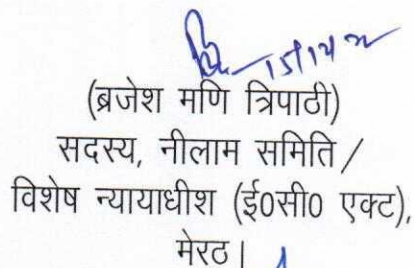 15/12/22
(ब्रजेश मणि त्रिपाठी)
सदस्य, नीलाम समिति /
विशेष न्यायाधीश (ई0सी0 एक्ट),
मेरठ।